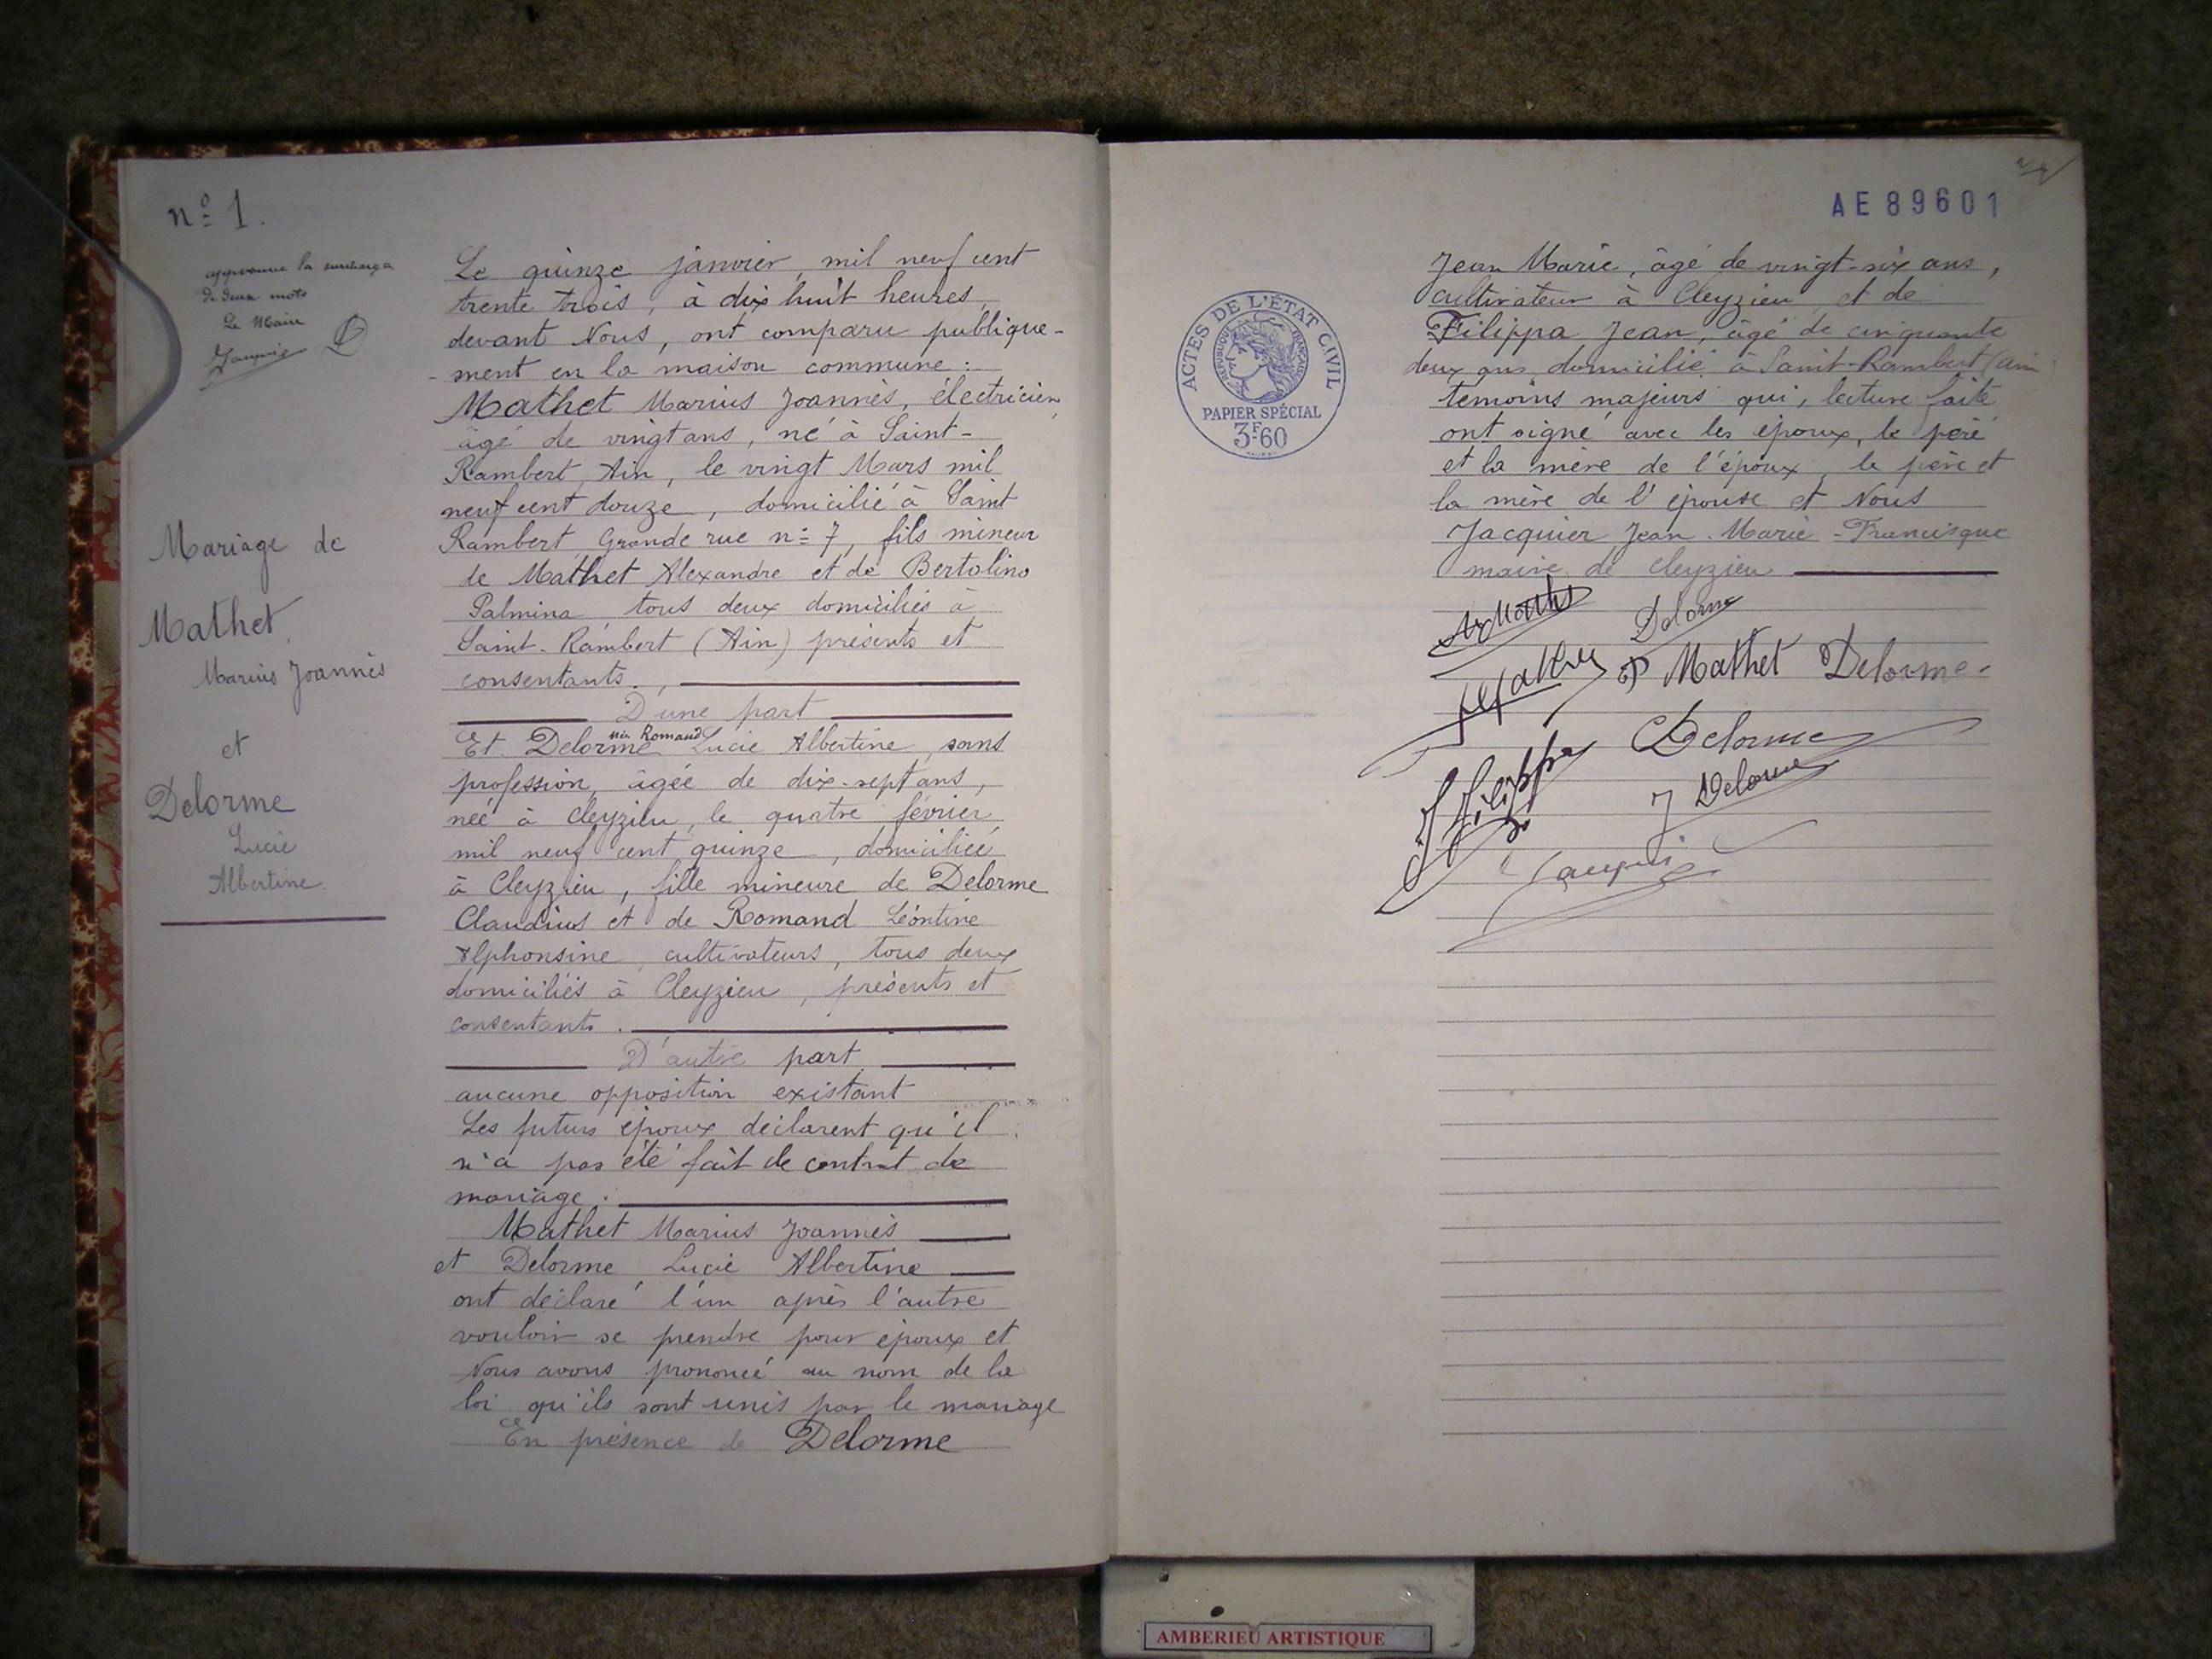 n° 1.
approuvé la surcharge
de deux mots
Le Maire
Jacquier
Mariage de
Mathet
Marius Joannès
et
Delorme
Lucie
Albertine.
Le quinze janvier mil neuf cent
trente trois, à dix huit heures,
devant Nous, ont comparu publique-
-ment en la maison commune :
Mathet Marius Joannès, électricien,
âgé de vingt ans, né à Saint-
Rambert, Ain, le vingt Mars mil
neuf cent douze, domicilié à Saint
Rambert, Grande rue n° 7, fils mineur
de Mathet Alexandre et de Bertolino
Palmina, tous deux domiciliés à
Saint-Rambert (Ain) présents et
consentants.
D'une part
Romand
Et Delorme Lucie Albertine, sans
profession, âgée de dix-sept ans,
née à Cleyzieu, le quatre février
mil neuf cent quinze, domiciliée
à Cleyzieu, fille mineure de Delorme
Claudius et de Romand Léontine
Alphonsine, cultivateurs, tous deux
domiciliés à Cleyzieu, présents et
consentants.
D'autre part
aucune opposition existant
Les futurs époux déclarent qu'il
n'a pas été fait de contrat de
mariage.
Mathet Marius Joannès
et Delorme Lucie Albertine
ont déclaré l'un après l'autre
vouloir se prendre pour époux et
Nous avons prononcé au nom de la
loi qu'ils sont unis par le mariage
En présence de Delorme
AE 89601
ACTES DE L'ÉTAT CIVIL
RÉPUBLIQUE FRANÇAISE
PAPIER SPÉCIAL
3F60
Jean Marie, âgé de vingt-six ans,
cultivateur à Cleyzieu et de
Filippa Jean, âgé de cinquante
deux ans, domicilié à Saint-Rambert (ain
témoins majeurs qui, lecture faite
ont signé avec les époux, le père
et la mère de l'époux, le père et
la mère de l'épouse et Nous
Jacquier Jean-Marie-Francisque
maire de Cleyzieu
Delorme
P Mathet Delorme
Delorme
J Filippa
J Delorme
Jacquier
AMBERIEU ARTISTIQUE